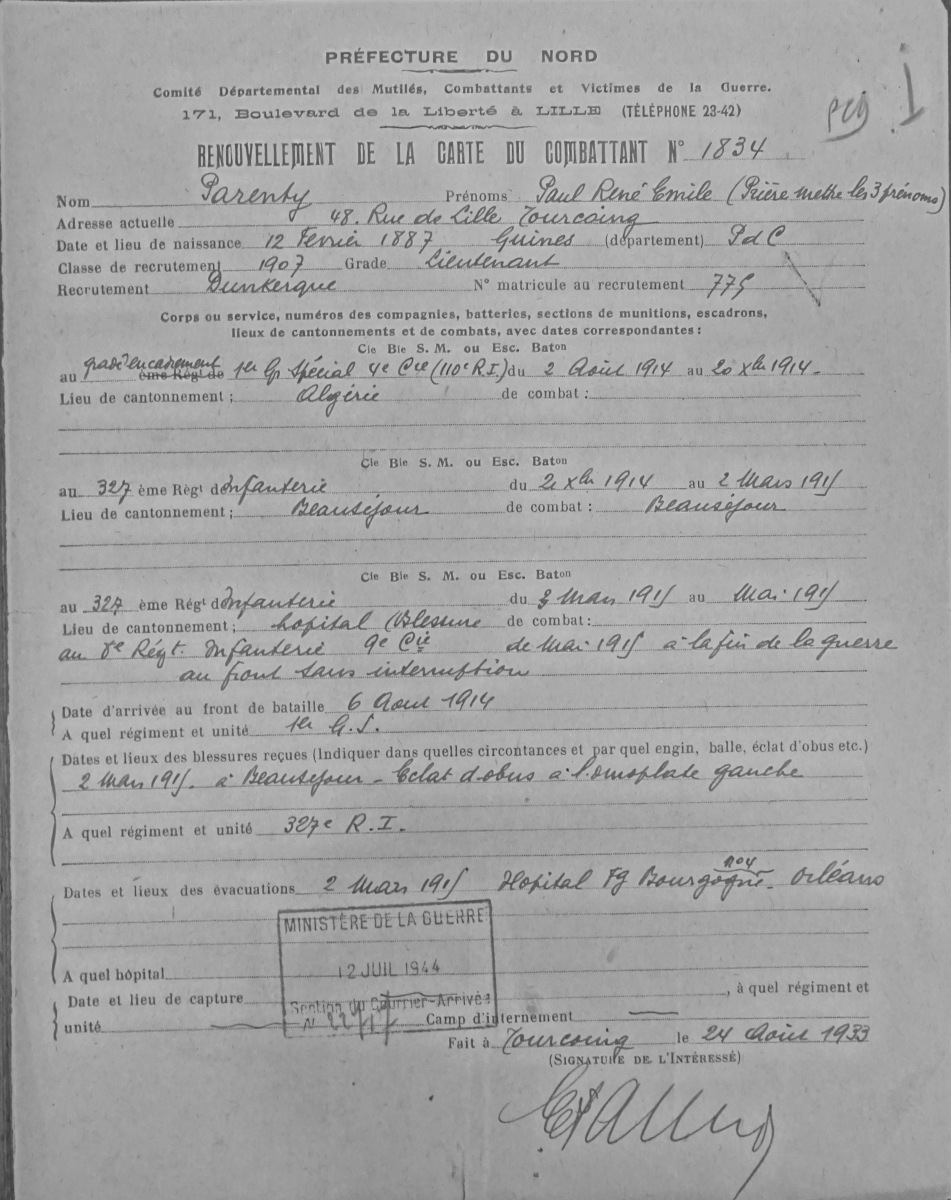 PRÉFECTURE DU NORD
Comité Départemental des Mutilés, Combattants et Victimes de la Guerre.
171, Boulevard de la Liberté à LILLE (TÉLÉPHONE 23-42)
RENOUVELLEMENT DE LA CARTE DU COMBATTANT N° 1834
Nom Parenty Prénoms Paul René Emile (Prière mettre les 3 prénoms)
Adresse actuelle 48. Rue de Lille Tourcoing
Date et lieu de naissance 12 Fevrier 1887 Guines (département) PdC
Classe de recrutement 1907 Grade Lieutenant
Recrutement Dunkerque N° matricule au recrutement 775
Corps ou service, numéros des compagnies, batteries, sections de munitions, escadrons,
lieux de cantonnements et de combats, avec dates correspondantes :
Cie Bie S. M. ou Esc. Baton
au ème Régt de 1er Gp Spécial 4e Cie (110e R.I.) du 2 Août 1914 au 20 Xbre 1914.
Lieu de cantonnement : Algérie de combat :
Cie Bie S. M. ou Esc. Baton
au 327 ème Régt d'Infanterie du 21 Xbre 1914 au 2 Mars 1915
Lieu de cantonnement : Beauséjour de combat : Beauséjour
Cie Bie S. M. ou Esc. Baton
au 327 ème Régt d'Infanterie du 3 Mars 1915 au Mai 1915
Lieu de cantonnement : hopital (Blessure de combat :
au 8e Régt. Infanterie 9e Cie de Mai 1915 à la fin de la guerre
au front sans interruption
Date d'arrivée au front de bataille 6 Aout 1914
A quel régiment et unité 1er G.S.
Dates et lieux des blessures reçues (Indiquer dans quelles circontances et par quel engin, balle, éclat d'obus etc.)
2 Mars 1915. à Beauséjour - Eclat d'obus à l'omoplate gauche
A quel régiment et unité 327e R.I.
Dates et lieux des évacuations 2 Mars 1915 Hopital Fg Bourgogne n°4. Orléans
MINISTÈRE DE LA GUERRE
A quel hôpital 12 JUIL 1944
Date et lieu de capture , à quel régiment et
Section du Courrier-Arrivée
unité N° Camp d'internement
Fait à Tourcoing le 24 Août 1933
(SIGNATURE DE L'INTÉRESSÉ)